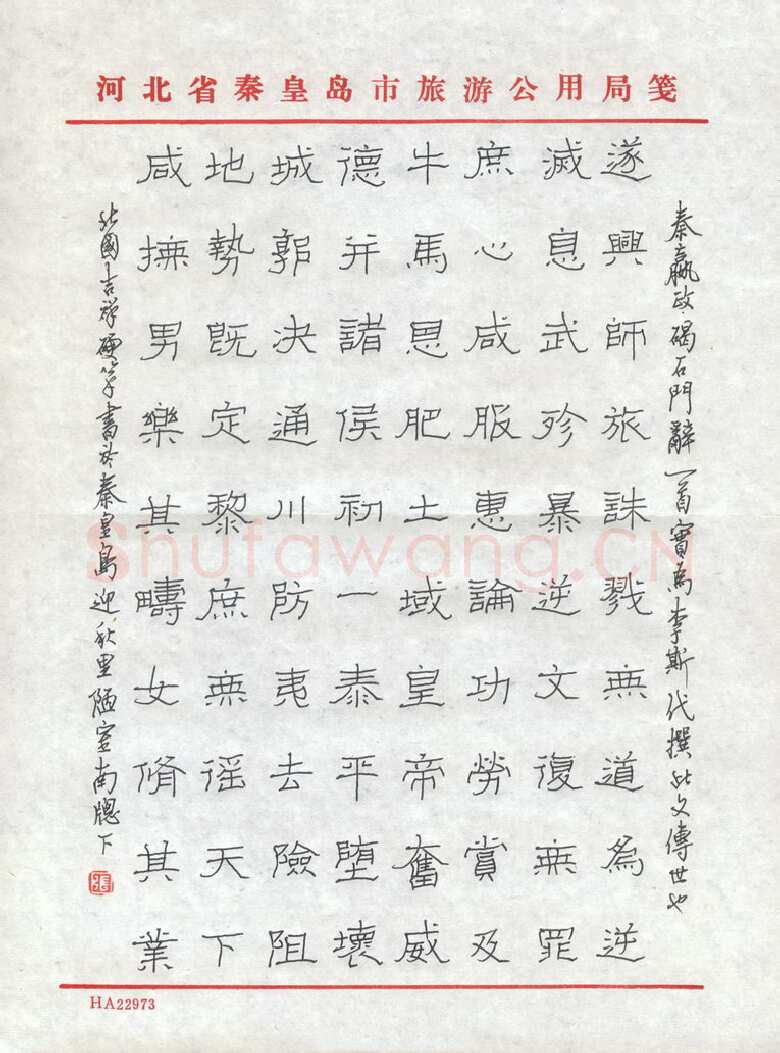 河北省秦皇岛市旅游公用局笺
秦嬴政碣石門辭一首實爲李斯代撰此文傳世也
遂興師旅誅戮無道爲逆
滅息武殄暴逆文復無罪
庶心咸服惠論功勞賞及
牛馬恩肥土域皇帝奮威
德并諸侯初一泰平堕壞
城郭决通川防夷去險阻
地勢既定黎庶無徭天下
咸撫男樂其疇女脩其業
北國吉祥硬筆書於秦皇島迎秋里陋室南牕下
張
HA22973
Shufawang.CN